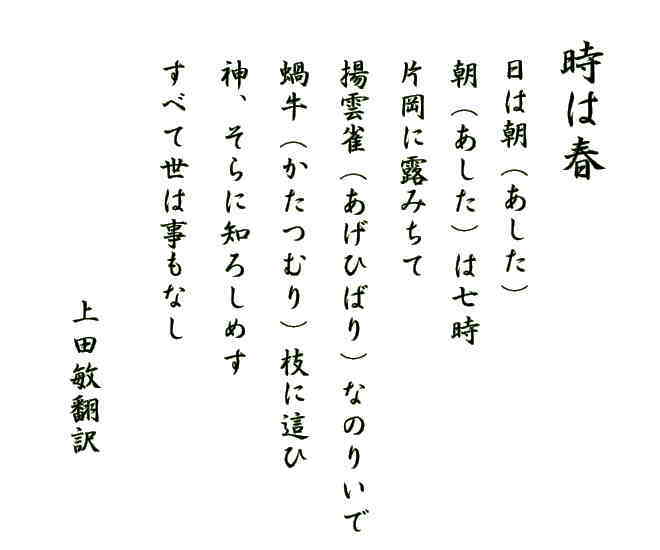 時は春
日は朝（あした）
朝（あした）は七時
片岡に露みちて
揚雲雀（あげひばり）なのりいで
蝸牛（かたつむり）枝に這ひ
神、そらに知ろしめす
すべて世は事もなし
上田敏翻訳